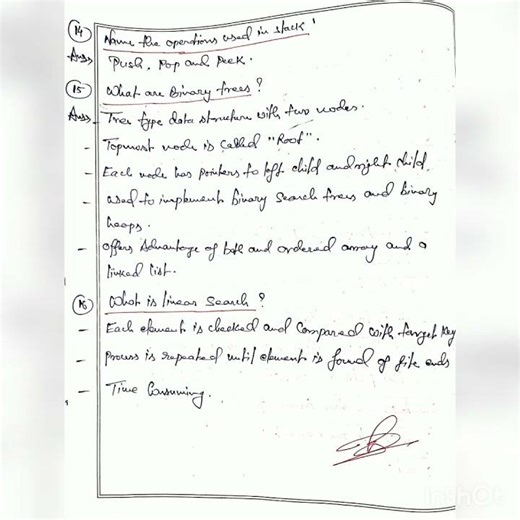 14 Name the operations used in stack'
Ans. Push, Pop and Peek.
15 What are Binary trees?
Ans. - Tree type data structure with two nodes.
- Topmost node is called "Root".
- Each node has pointers to left child and right child.
- used to implement binary search trees and binary
heaps.
- Offers Advantage of both and ordered array and a
linked list.
16 What is linear Search?
- Each element is checked and Compared with target key
- Process is repeated until element is found of file ends
- Time Consuming.
InShOt